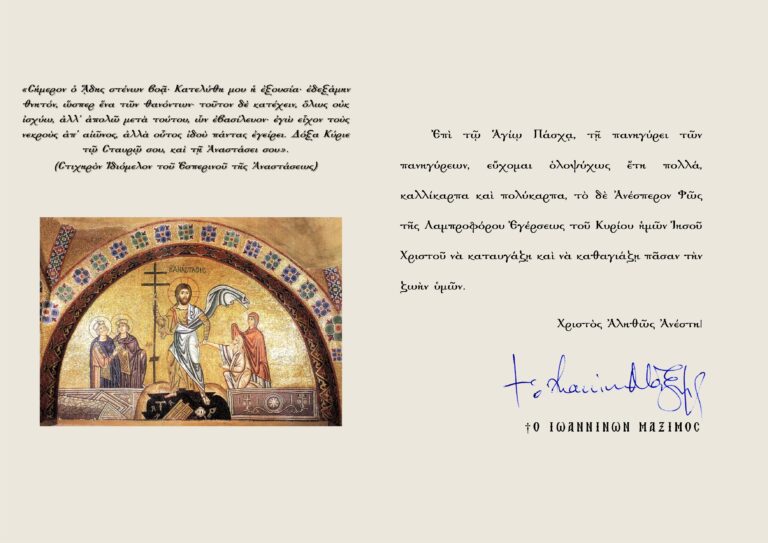 «Σήμερον ὁ ᾅδης στένων βοᾷ· Κατελύθη μου ἡ ἐξουσία· ἐδεξάμην
θνητόν, ὥσπερ ἕνα τῶν θανόντων· τοῦτον δὲ κατέχειν, ὅλως οὐκ
ἰσχύω, ἀλλ' ἀπολῶ μετὰ τούτου, ὧν ἐβασίλευον· ἐγὼ εἶχον τοὺς
νεκροὺς ἀπ' αἰῶνος, ἀλλὰ οὗτος ἰδοὺ πάντας ἐγείρει. Δόξα Κύριε
τῷ Σταυρῷ σου, καὶ τῇ Ἀναστάσει σου».
(Στιχηρὸν Ἰδιόμελον τοῦ Ἑσπερινοῦ τῆς Ἀναστάσεως)
Η ΑΝΑΣΤΑΣΙΣ
Ἐπὶ τῷ Ἁγίῳ Πάσχᾳ, τῇ πανηγύρει τῶν
πανηγύρεων, εὔχομαι ὁλοψύχως ἔτη πολλά,
καλλίκαρπα καὶ πολύκαρπα, τὸ δὲ Ἀνέσπερον Φῶς
τῆς Λαμπροφόρου Ἐγέρσεως τοῦ Κυρίου ἡμῶν Ἰησοῦ
Χριστοῦ νὰ καταυγάζῃ καὶ νὰ καθαγιάζῃ πᾶσαν τὴν
ζωὴν ὑμῶν.
Χριστὸς Ἀληθῶς Ἀνέστη!
†Ο ΙΩΑΝΝΙΝΩΝ ΜΑΞΙΜΟC